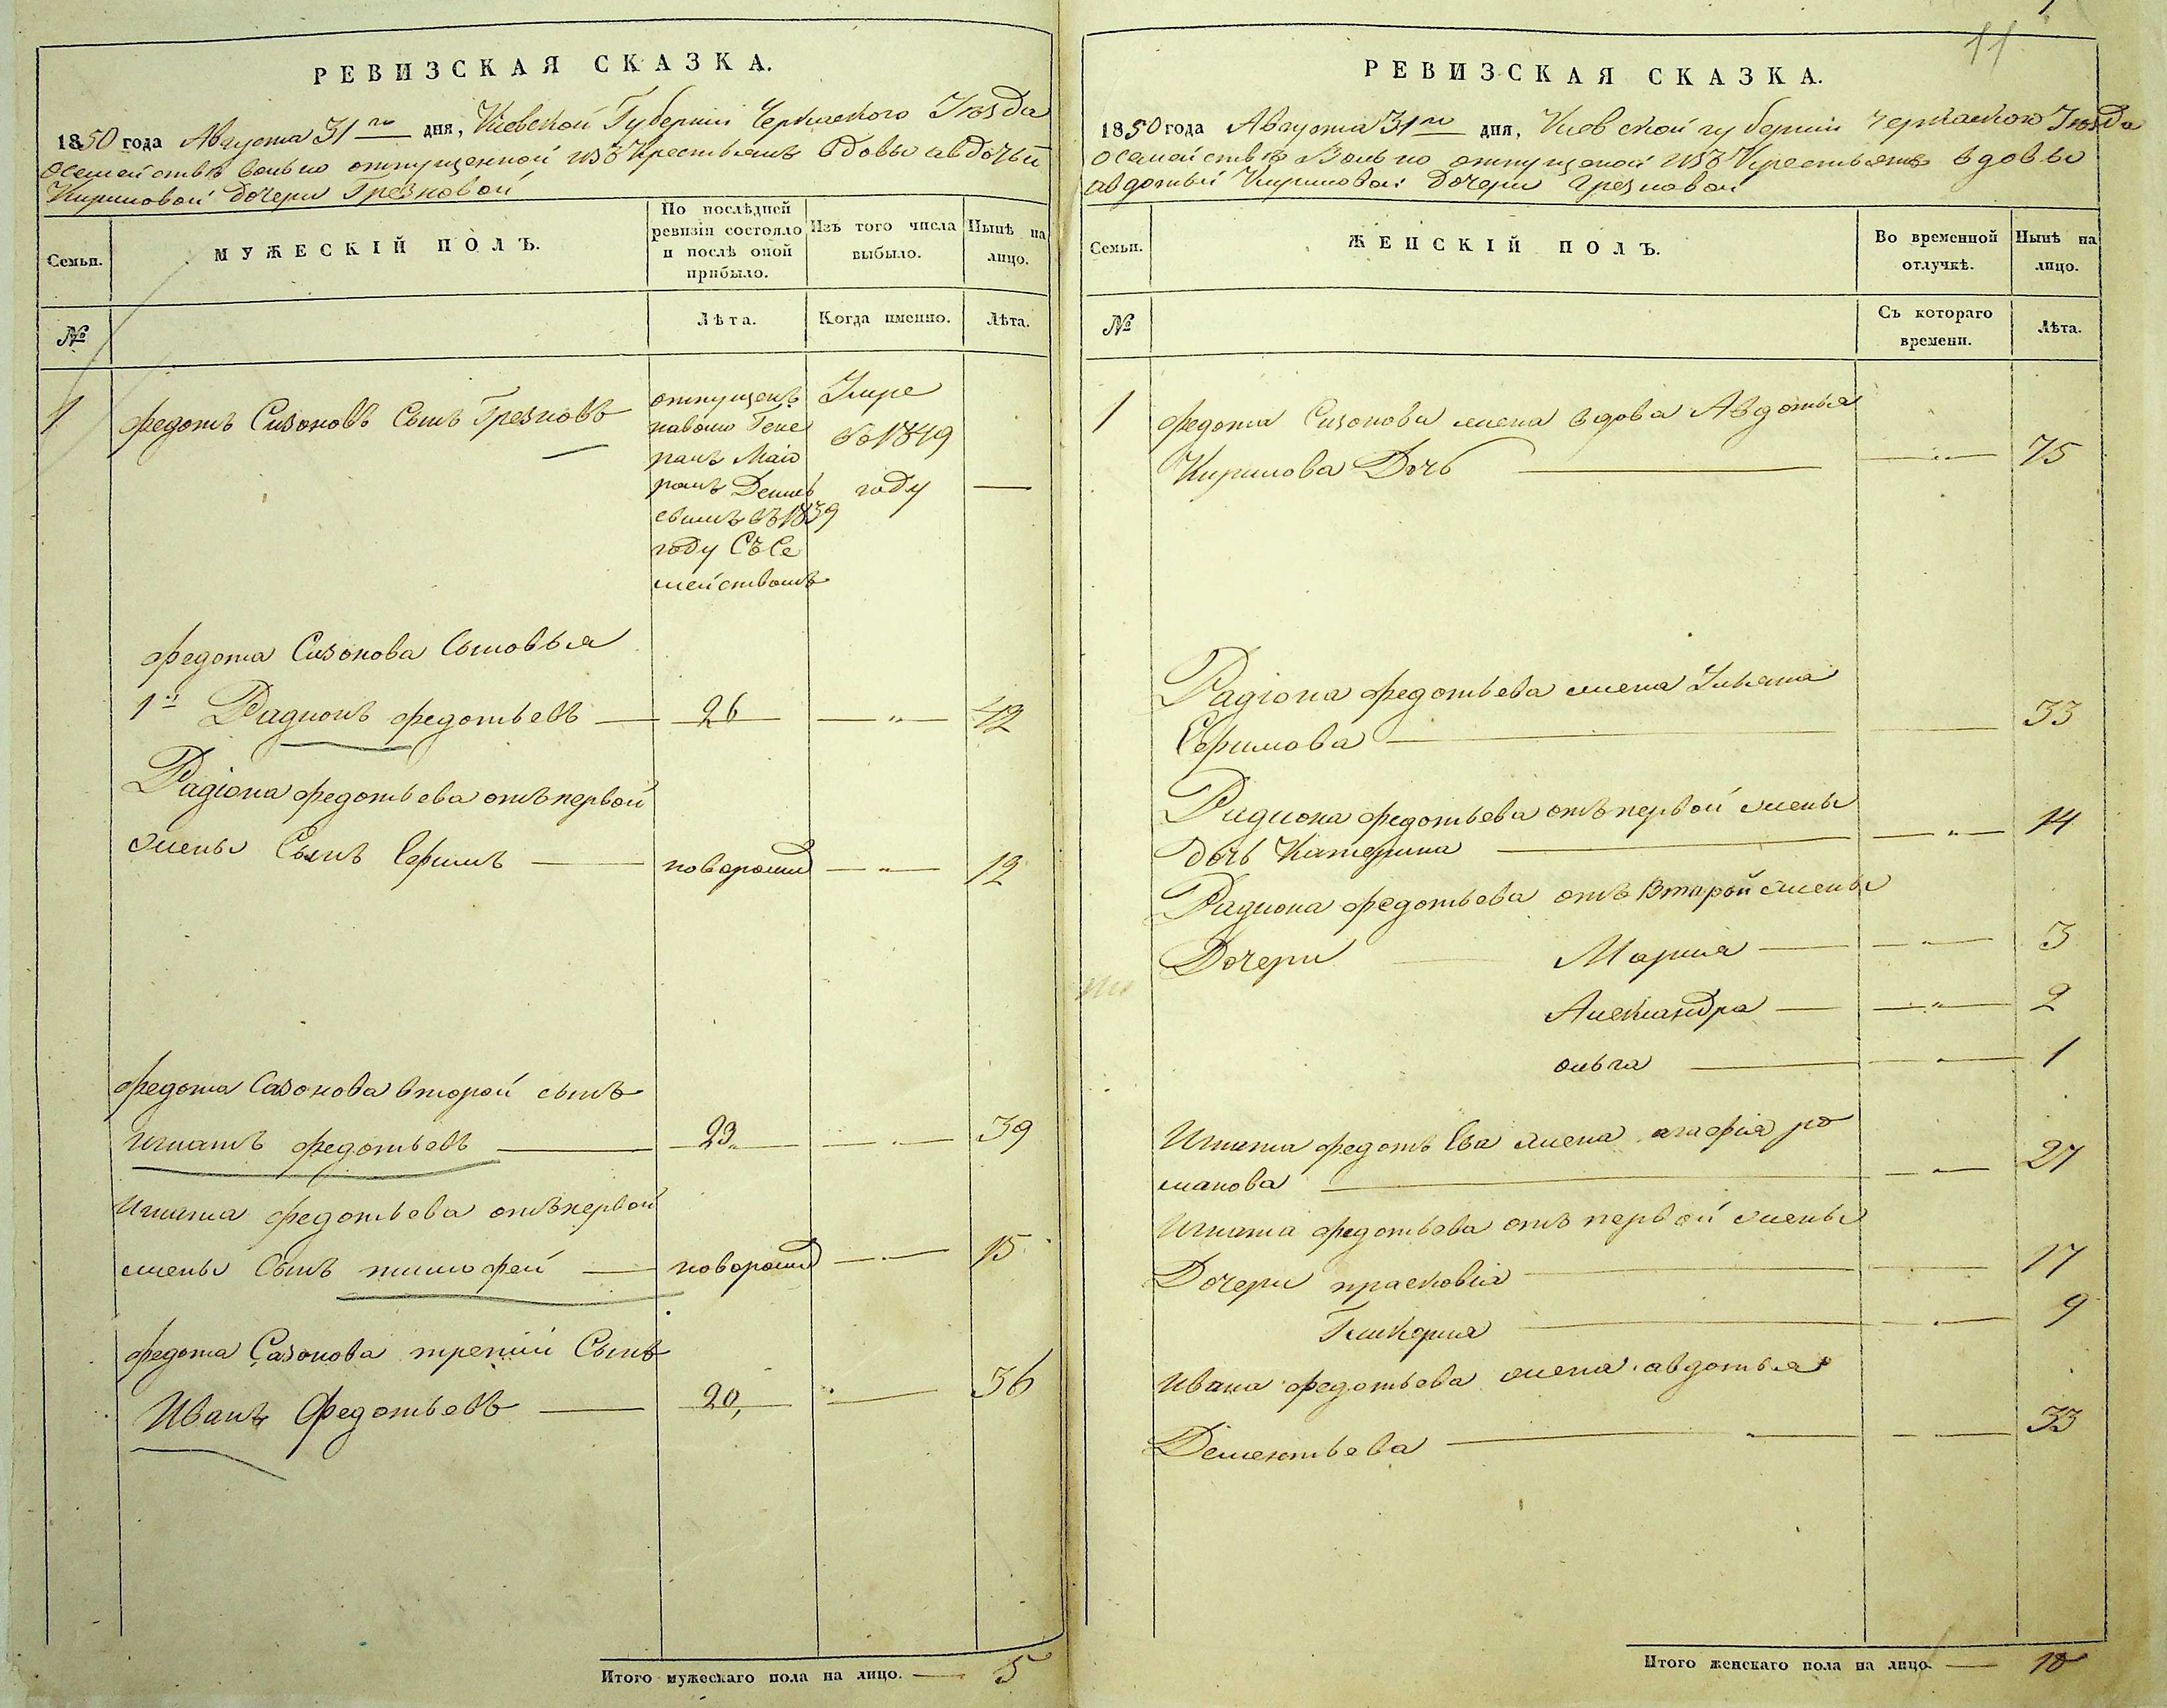 РЕВИЗСКАЯ СКАЗКА.
1850 года Августа 31го дня, Киевской Губернии Черкаского Уѣзда
О семействѣ вольно отпущенной изъ крестьянъ вдовы авдотьи
Кириловой дочери Грезновой
Семьи.
МУЖЕСКІЙ ПОЛЪ.
По послѣдней
ревизіи состояло
и послѣ оной
прибыло.
Изъ того числа
выбыло.
Нынѣ на
лицо.
№
Лѣта.
Когда именно.
Лѣта.
1 Федотъ Сизоновъ Сынъ Грезновъ
отпущенъ
наволю Гене
ралъ Маіо
ромъ
въ 1839
году Съ Се
мействомъ
Умре
въ 1849
году
—
Федота Сизонова Сыновья
1й Радионъ федотьевъ — 26 — „ — 42
Радіона федотьева отъ первой
жены Сынъ Ефимъ — новорожд — „ — 12
Федота Сазонова второй сынъ
Игнатъ федотьевъ — 23 — „ — 39
Игната федотьева отъ первой
жены Сынъ тимофей — новорожд — „ — 15
федота Сазонова третий Сынъ
Иванъ Федотьевъ — 20, „ — 36
Итого мужескаго пола на лицо. — 5
11
РЕВИЗСКАЯ СКАЗКА.
1850 года Августа 31го дня, Киевской губернии Черкаского Уѣзда
О семействѣ Вольно отпущеной изъ Крестьянъ вдовы
авдотьи Кириловой Дочери Грезновой
Семьи.
ЖЕНСКІЙ ПОЛЪ.
Во временной
отлучкѣ.
Нынѣ на
лицо.
№
Съ котораго
времени.
Лѣта.
1 Федота Сизонова жена вдова Авдотья
Кирилова Дочь — „ — 75
Радіона федотьева жена Ульяна
Ефимова — 33
Радиона федотьева отъ первой жены
дочь Катерина — „ — 14
Радиона федотьева отъ Второй жены
Дочери Мария — „ — 3
Александра — „ — 2
ольга — „ — 1
Игната федотьева жена агафія ро
манова — „ — 27
Игната федотьева отъ первой жены
Дочери прасковія — 17
Гликерия — „ — 9
Ивана федотьева жена авдотья
Дементьева — „ — 33
Итого женскаго пола на лицо. — 10